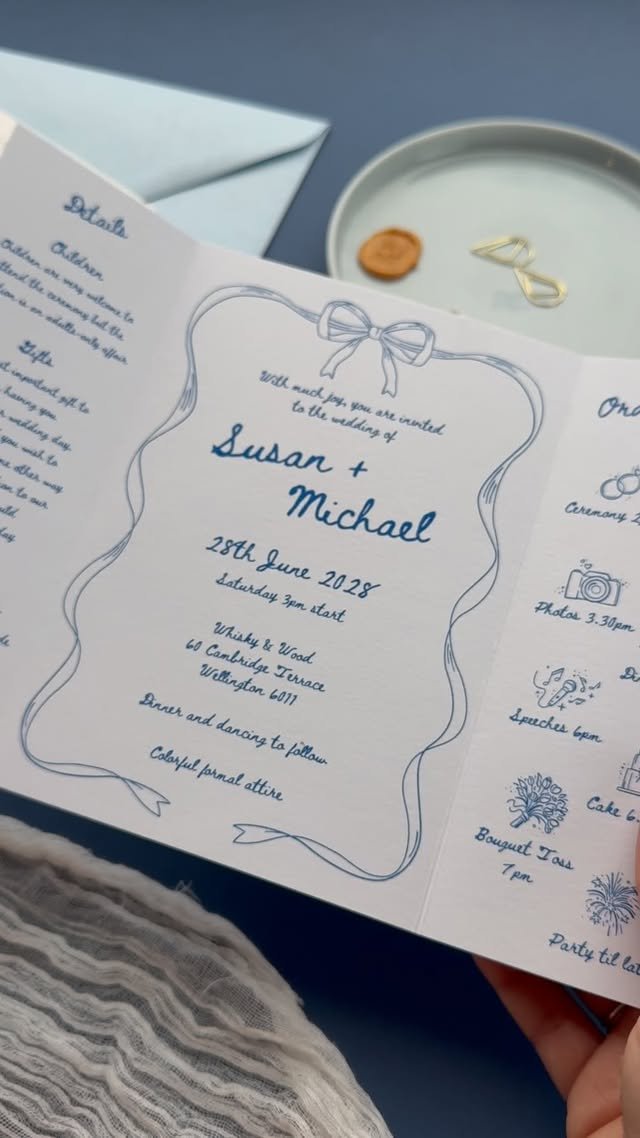 Details
Children
Children are very welcome to
attend the ceremony but the
is an adults-only affair
Gifts
important gift to
having you
wedding day.
you wish to
other way
to our
day
With much joy, you are invited
to the wedding of
Susan +
Michael
28th June 2028
Saturday 3pm start
Whisky & Wood
60 Cambridge Terrace
Wellington 6011
Dinner and dancing to follow
Colorful formal attire
Ceremony 2
Photos 3.30pm
Speeches 6pm
Cake 6.
Bouquet Toss
7pm
Party til